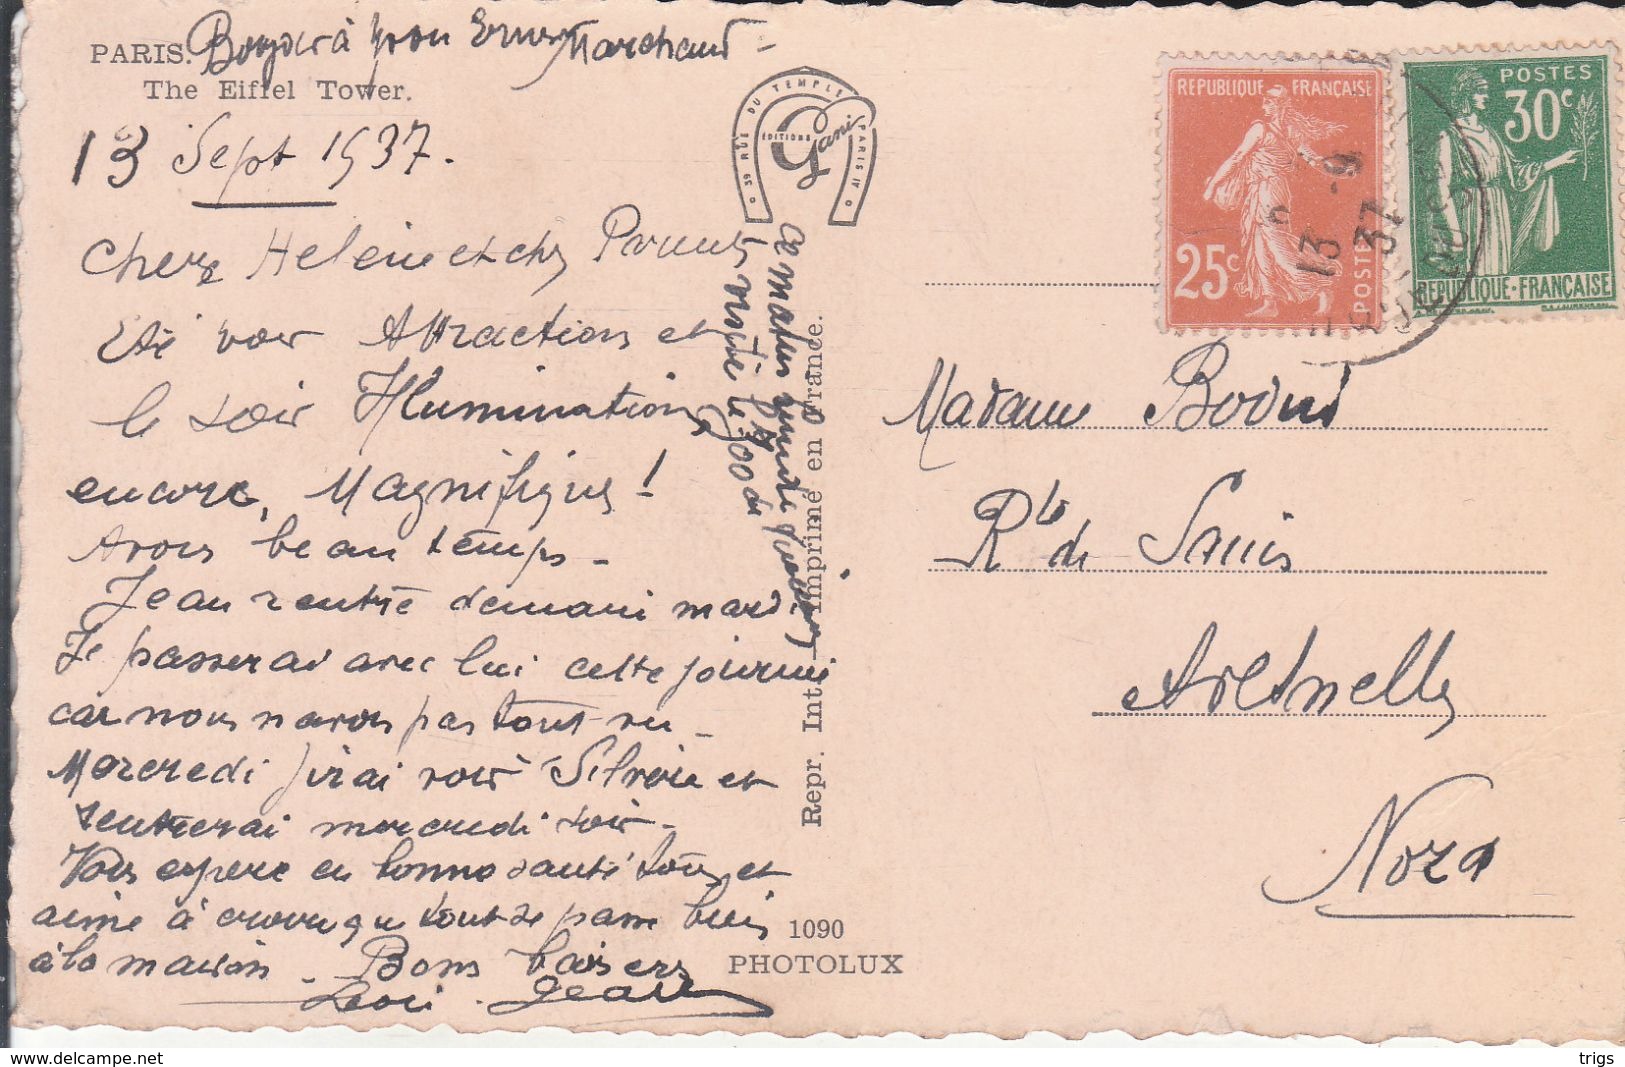 PARIS. Bonjour à Yvon Ernest Marchand -
The Eiffel Tower.
13 Sept 1937.
Chere Helene et chs Parents
Eté voir Attractions et
le soir Illuminations
encore, Magnifique !
Avons beau temps -
Jean rentre demain mardi
Je passerai avec lui cette journée
car nous navons pas tout vu -
Mercredi j'irai voir et
rentrerai mercredi soir -
Vous espere en bonne santé tous et
aime à croire que tout se passe bien
à la maison - Bons baisers
Jean
ce matin
visité le Zoo de
39 RUE DU TEMPLE PARIS IV
EDITIONS
Gani
Repr. Int. - Imprimé en France.
1090
PHOTOLUX
REPUBLIQUE FRANÇAISE
25c
POSTES
POSTES
30c
REPUBLIQUE·FRANÇAISE
13 - 9
37
Madame
Rte de Senlis